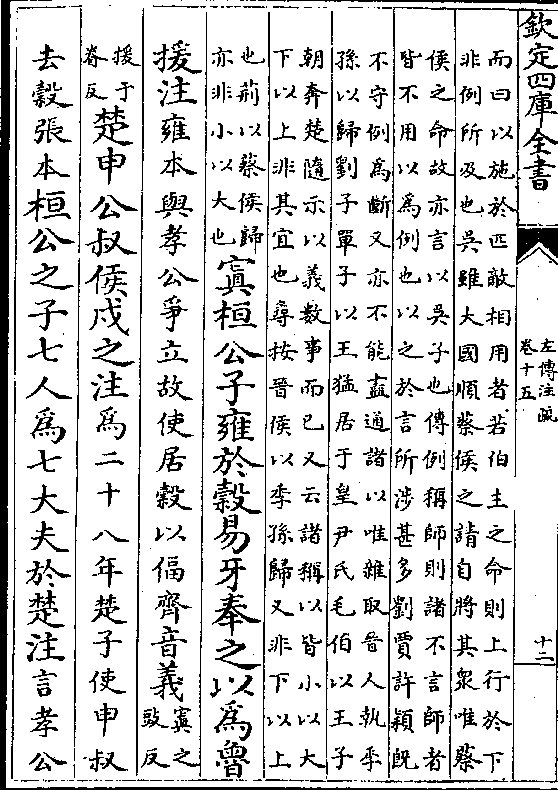 欽定四庫全書
左傳注疏
卷十五
十二
而曰以施於匹敵相用者若伯主之命則上行於下
非例所及也吳雖大國順蔡侯之請自將其衆唯蔡
侯之命故亦言以吳子也傳例稱師則諸不言師者
皆不用以為例也以之於言所涉甚多劉賈許頴既
不守例為斷又亦不能盡通諸以唯雜取晉人執季
孫以歸劉子單子以王猛居于皇尹氏毛伯以王子
朝奔楚隨示以義數事而已又云諸稱以皆小以大
下以上非其宜也尋按晉侯以季孫歸又非下以上
也荊以蔡侯歸
亦非小以大也
寘桓公子雍於穀易牙奉之以為魯
援注雍本與孝公爭立故使居穀以偪齊音義
寘之
豉反
援于
眷反
楚申公叔侯戍之注為二十八年楚子使申叔
去穀張本桓公之子七人為七大夫於楚注言孝公